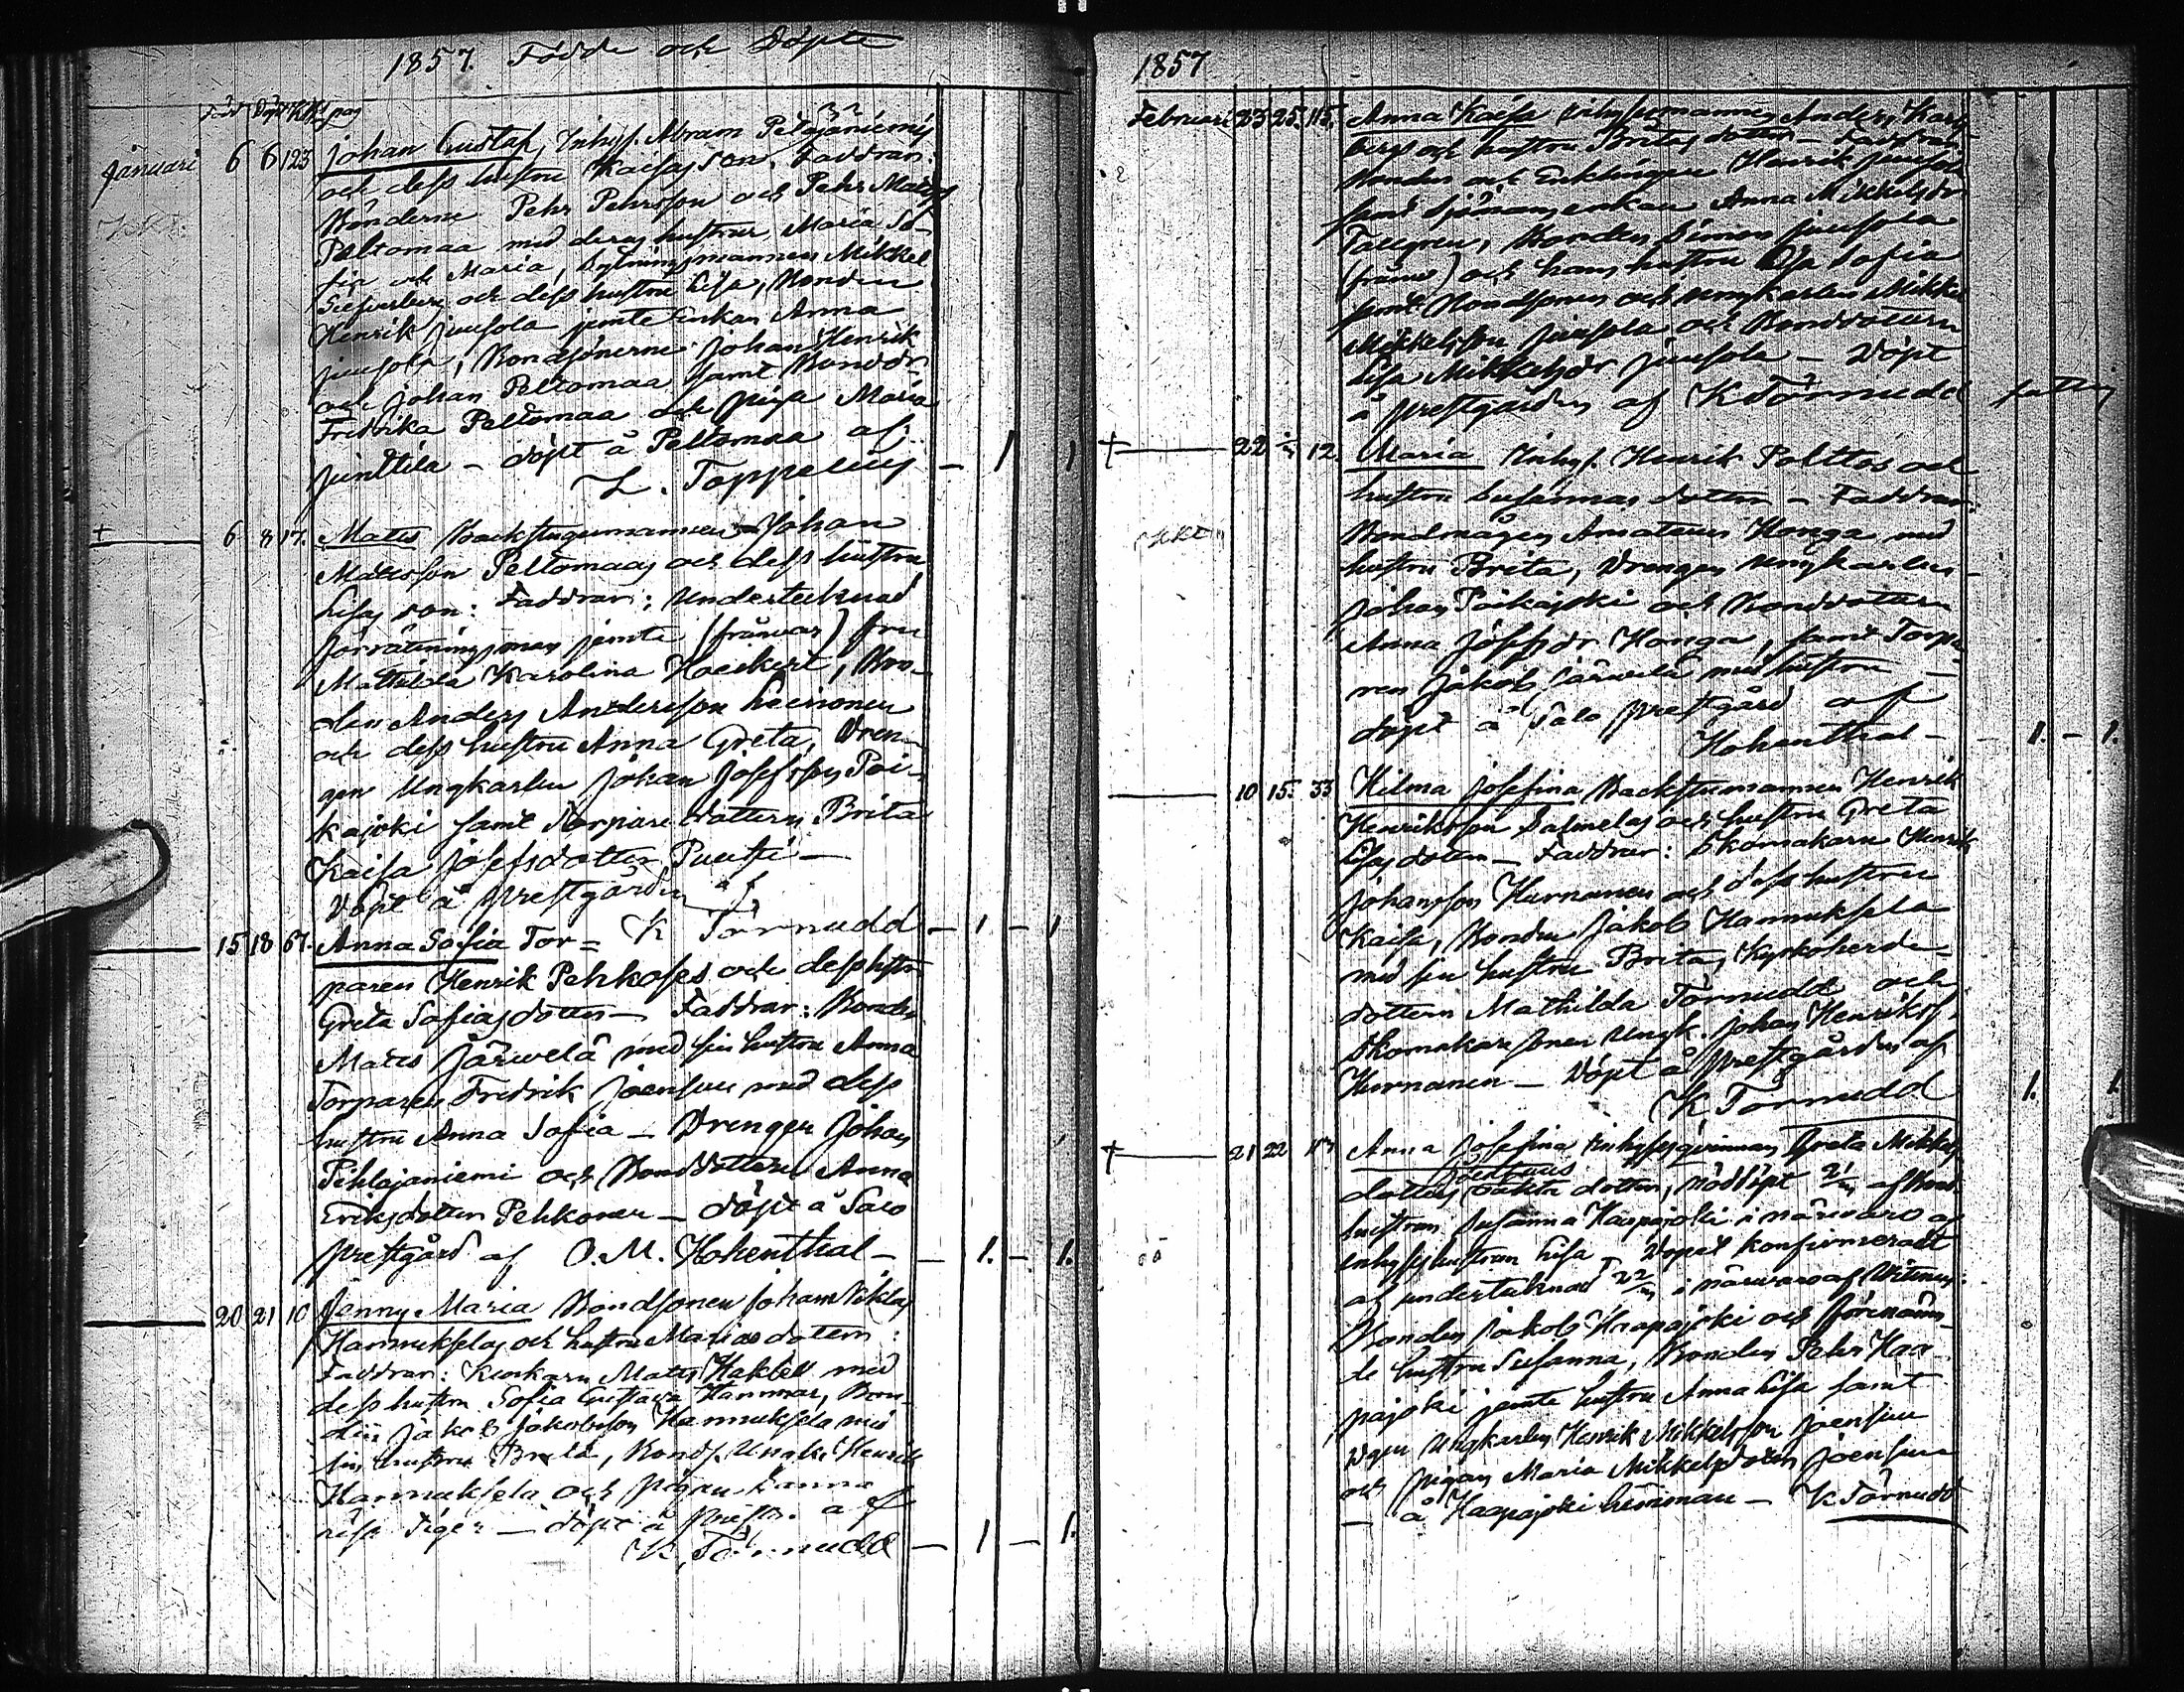 1857. Födde och Döpte
Född Döpt pag
Januari 6 6 123 Johan Gustaf, Inhys. Abram Pelajäniemis
och dess hustru Kaisas son. Faddrar:
Bönderne Pehr Pehrsson och Pehr Matss
Peltomaa med deras hustrur, Maria So-
fia och Maria, Sytningsmannen Mikkel
och dess hustru Lisa, Bonden
Henrik Juusola jemte Enkan Anna
Juusola, Bondsönerne Johan Henrik
och Johan Peltomaa samt Bonddr
Fredrika Peltomaa och piga Maria
Junttila – döpt å Peltomaa af
L. Toppelius – 1 1
6 8 17. Mats Backstugumannen Johan
Matsson Peltomaas och dess hustru
Lisas son: Faddrar: Undertecknad
förrättningsman jemte (frånvar) fru
Mathilda Karolina Hoeckert, Bon-
den Anders Andersson Leinonen
och dess hustru Anna Greta, Dren-
gen Ungkarlen Johan Josefsson Poi-
kajoki samt Torpare dottern Brita
Kaisa Josefsdotter Puutsi –
Döpt å Prestgården af
K Törnudd – 1 – 1
15 18 67. Anna Sofia Tor=
paren Henrik Pehkoses och dess hstr
Greta Sofias dotter – Faddrar: Bonden
Mats Järwelä med sin hustru Anna
Torparen Fredrik Joensuu med dess
hustru Anna Sofia – Drengen Johan
Pihlajaniemi och Bonddottern Anna
Eriksdotter Pehkonen – döpt å Salo
prestgård af O. M. Hohenthal – – 1. – 1.
20 21 10 Jenny Maria Bondsonen Johan Niklas
Hannukselas och hustru Marias dotter:
Faddrar: Mats Haklell med
dess hustru Sofia Gustava Hammar, Bon-
den Jakob Jakobsson Hannuksela med
sin hustru Brita, Bonds. Ungk. Henrik
Hannuksela och pigan Sanna
Tiger – döpt å Prestg. af
K. Törnudd – 1 – 1.
1857
Februari 23 25. 115. Anna Kaisa Inhysesmannen Anders Karl
bergs och hustru Britas dotter – Faddrar:
Bonden och Enklingen Henrik Juusola
samt Sjömansenkan Anna Mikkelsdr
Tallgren, Bonden Simon Juusola
(frånv) och hans hustru Lisa Sofia
samt Bondsonen och ungkarlen Mikkel
Mikkelsson Juusola och Bonddottern
Lisa Mikkelsdr Juusola – Döpt
å prestgården af K Törnudd
22 12. Maria Inhys. Henrik Polttos och
hustru Susannas dotter – Faddrar:
Bondmågen Amateus Honga med
hustru Brita, Drengen ungkarlen
Johan Poikajoki och Bonddottern
Anna Josefsdr Honga, samt Torpa-
ren Jakob Järwelä med hustru –
döpt å Salo prestgård af
Hohenthal – – 1. – 1.
10 15. 33 Hilma Josefina Backstumannen Henrik
Henriksson Salmelas och hustru Greta
Lisas dotter – Faddrar: Skomakarn Henrik
Johansson Hurnanen och dess hustru
Kaisa, Bonden Jakob Hannuksela
med sin hustru Brita, Kyrkoherde-
dottern Mathilda Törnudd och
Skomakaresonen Ungk. Johan Henriksf.
Hurnanen – Döpt å prestgården af
K Törnudd 1. 1.
21 22 Anna Josefina Inhysesqvinnan Greta Mikkels
dotters oäkta dotter, nöddöpt 21 af Bond-
hustrun Susanna Haapajoki i närwaro af
inhyseshustrun Lisa – Dopet konfirmeradt
af undertecknad 22 i närwaro af Witnen:
Bonden Jakob Haapajoki och förenämn-
de hustru Susanna, Bonden Pehr Haa-
pajoki jemte hustru Anna Lisa samt
Ungkarlen Henrik Mikkelsson Joensuu
och pigan Maria Mikkelsdotter Joensuu
– å Haapajoki hemman – K Törnudd